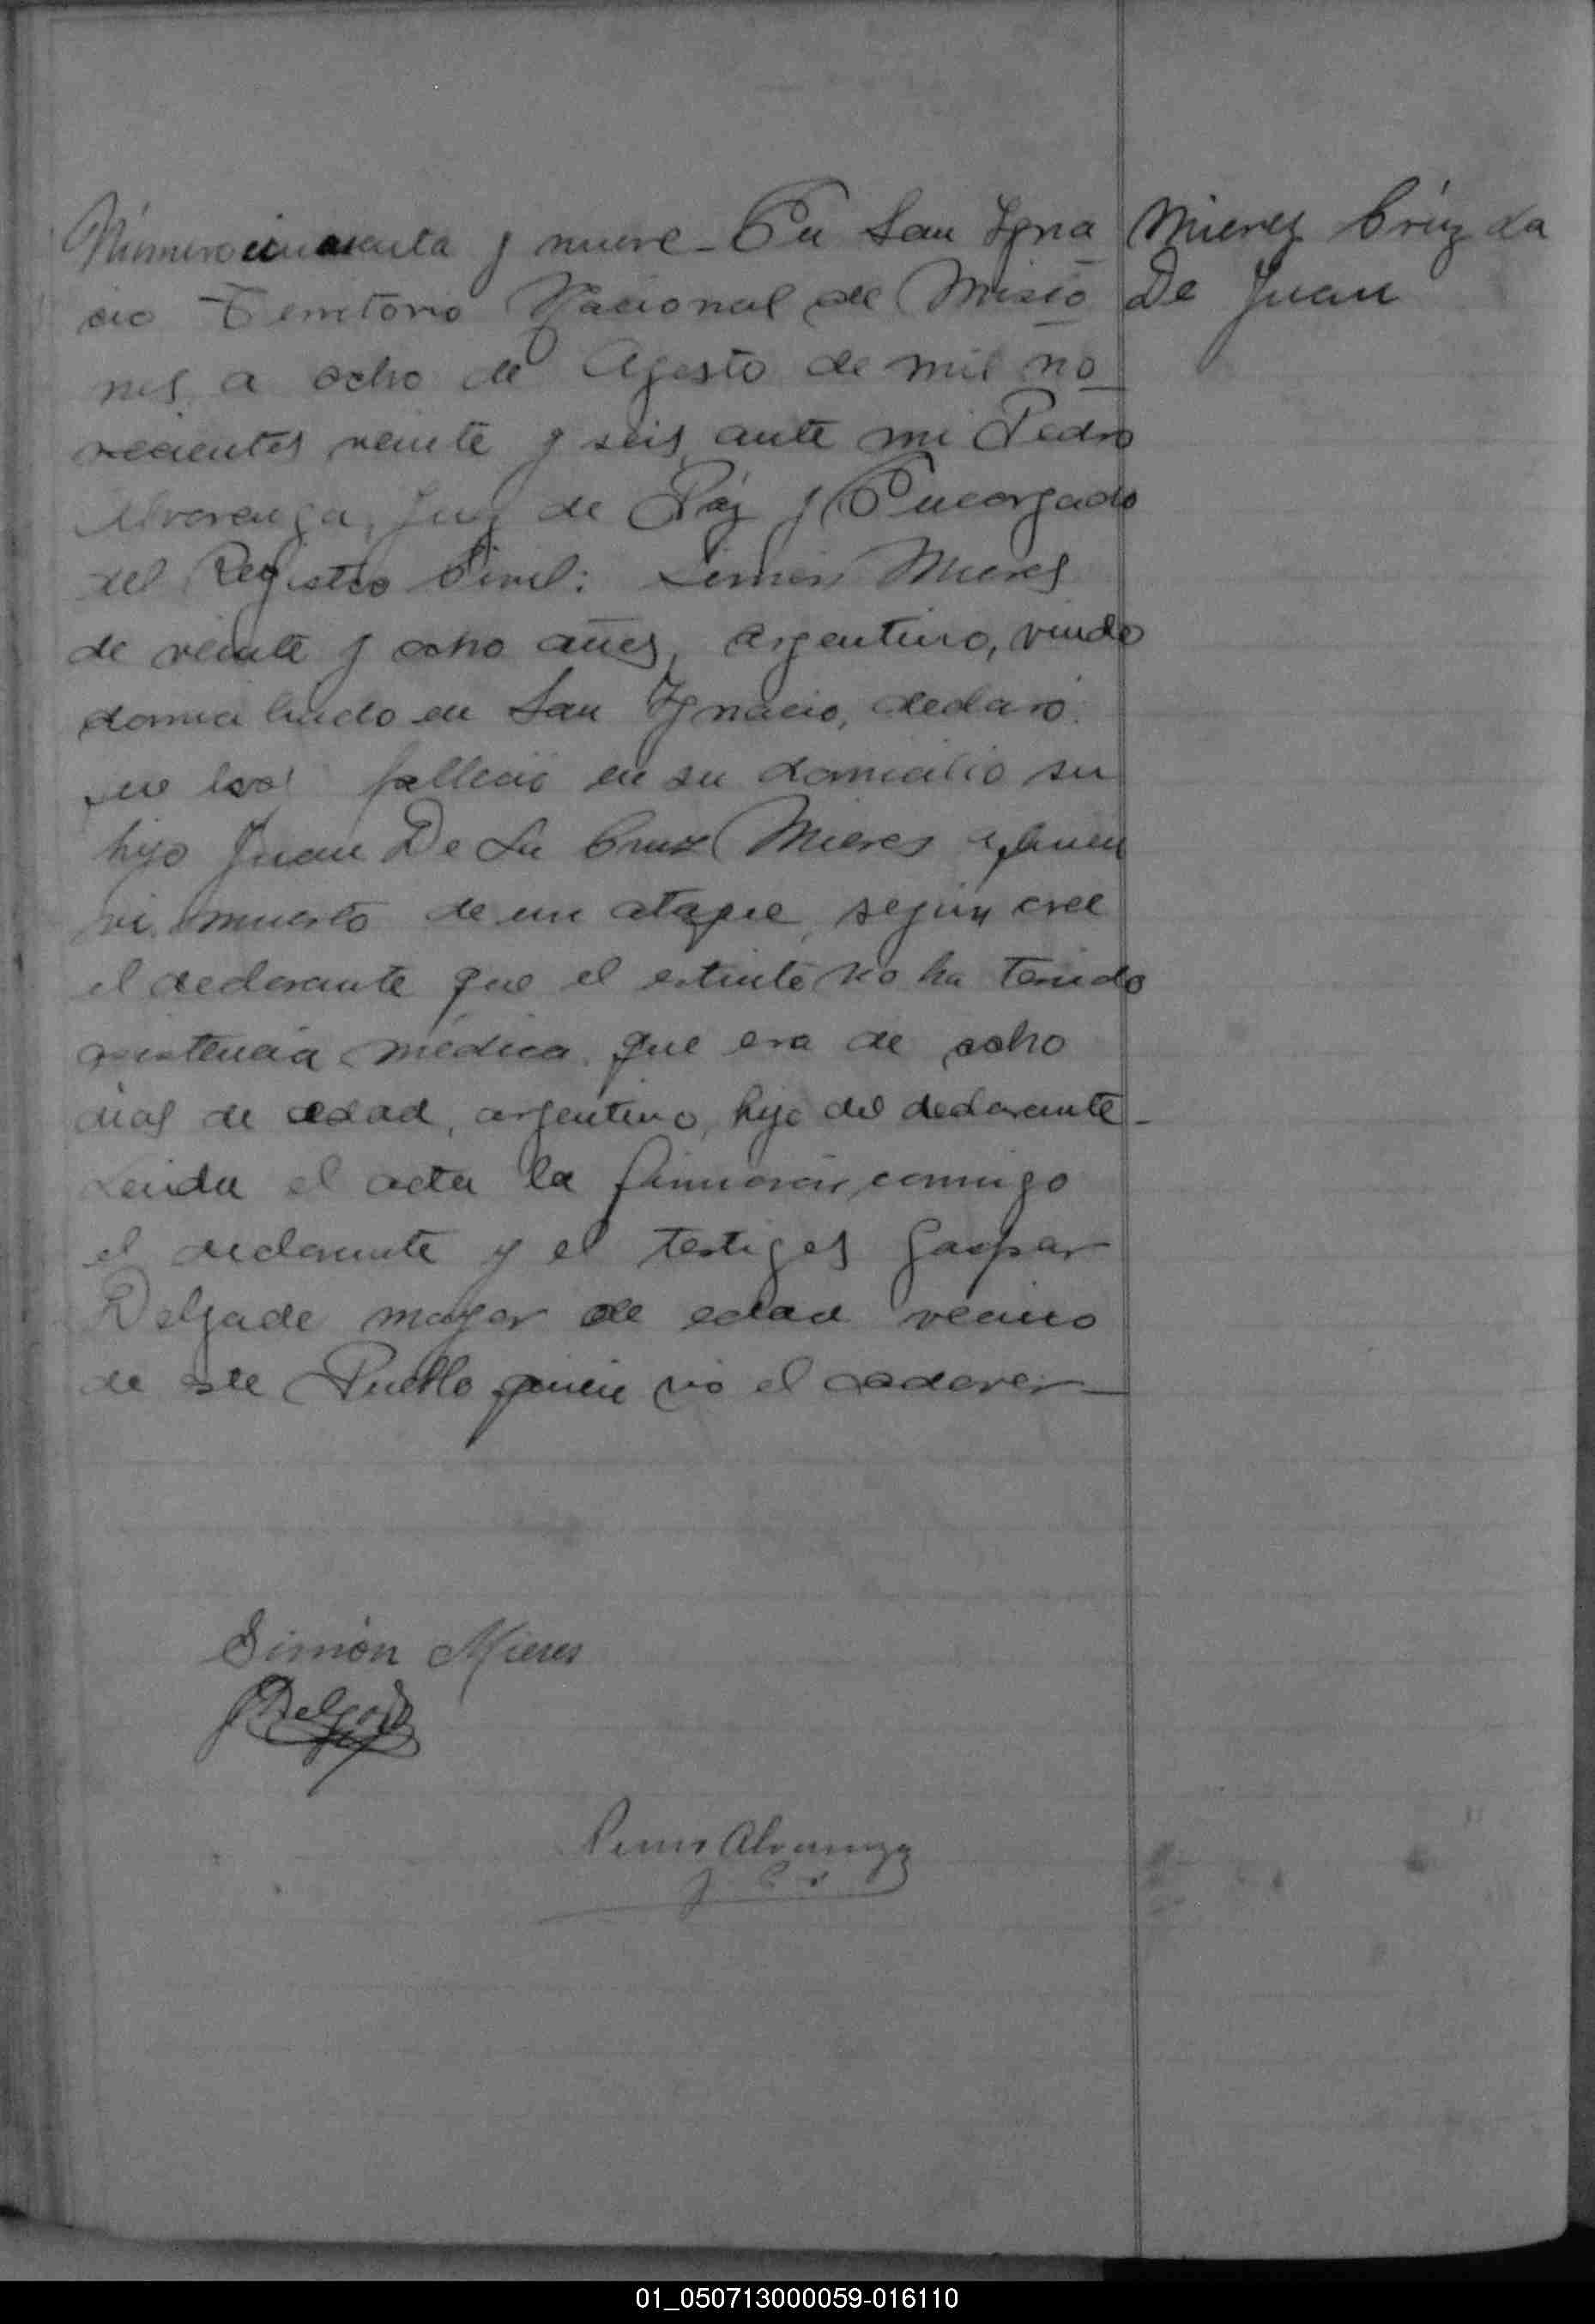 Número cincuenta y nueve - En San Igna
Mierez Crúz La
cio Territorio Nacional de Misio
De Juan
nes, a ocho de Agosto de mil no
vecientos veinte y seis, ante mi Pedro
Alvarenga, Juez de Páz y Encargado
del Registro Civil: Simón Mieres
de veinte y ocho años, argentino, viudo
domiciliado en San Ignacio, declaró:
que falleció en su domicilio su
hijo Juan De La Cruz Mieres a quien
vi muerto de un ataque, según cree
el declarante que el estinto no ha tenido
asistencia médica, que era de ocho
días de edad, argentino, hijo del declarante -
Leida el acta la firmaron conmigo
el declarante y el testigos Gaspar
Delgado mayor de edad vecino
de este Pueblo quien vió el cadaver -
Simón Mieres
GDelgado
Pedro Alvarenga
01_050713000059-016110